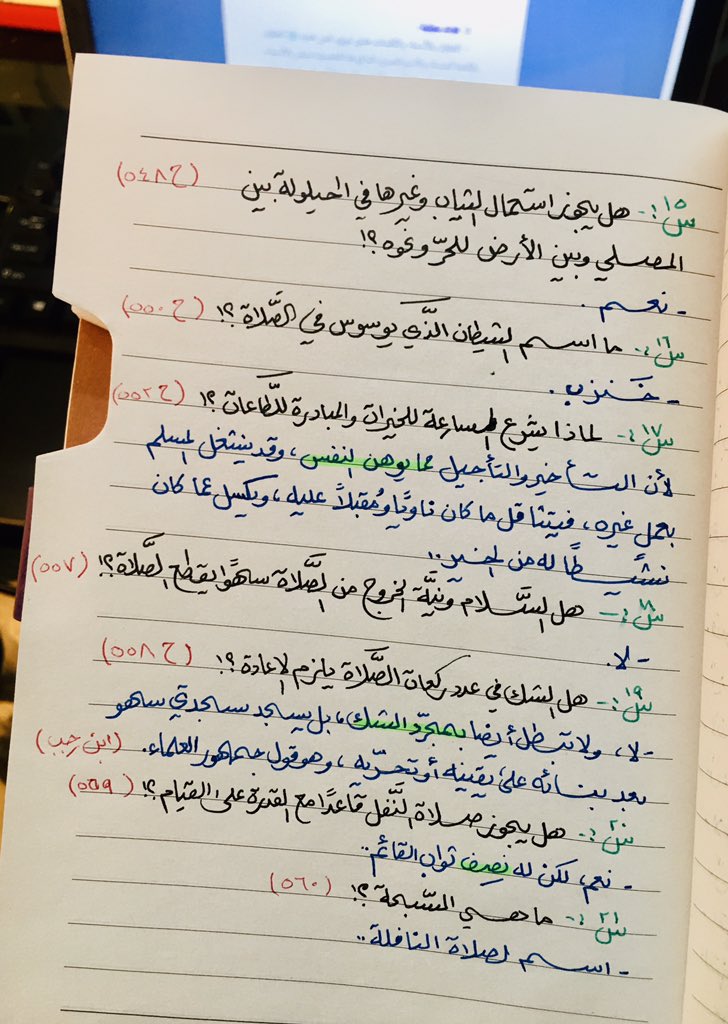 س١٥:- هل يجوز استعمال الثياب وغيرها في الحيلولة بين (ح٥٤٨)
المصلي وبين الأرض للحرّ ونحوه؟!
- نعم.
س١٦:- ما اسم الشيطان الذَّي يوسوس في الصَّلاة؟! (ح٥٥٠)
- خَنزب.
س١٧:- لماذا يشرع المسارعة للخيرات والمبادرة للطَّاعات؟! (ح٥٥٢)
لأن التأخير والتأجيل مما يوهن النفس، وقد ينشغل المسلم
بعمل غيره، فيتثاقل ما كان ناويًا ومُقبلاً عليه، ويكسل عما كان
نشيطًا له من الخير..
س١٨:- هل السَّلام ونيَّة الخروج من الصَّلاة سهوًا يقطع الصَّلاة؟! (٥٥٧)
- لا.
س١٩:- هل الشك في عدد ركعات الصَّلاة يلزم الإعادة؟! (ح٥٥٨)
- لا، ولا تبطل أيضا بمجرّد الشك، بل يسجد سجدتي سهو
بعد بنائه على يقينه أو تحرّيه، وهو قول جمهور العلماء. (ابن رجب)
س٢٠:- هل يجوز صلاة النَّفل قاعدًا مع القدرة على القيام؟! (٥٥٩)
- نعم، لكن له نصف ثواب القائم..
س٢١:- ما هي السّبحة؟! (٥٦٠)
- اسم لصلاة النافلة..